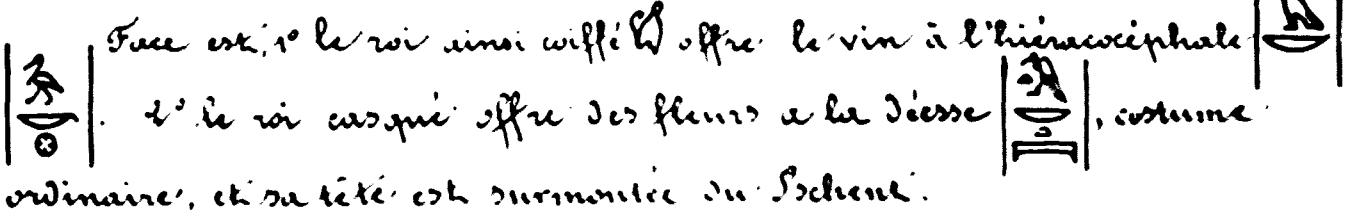 Face est, 1° le roi ainsi coiffé offre le vin à l'hiéracocéphale
. 2° le roi casqué offre des fleurs a la déesse , costume
ordinaire, et sa tête est surmontée du Pschent.